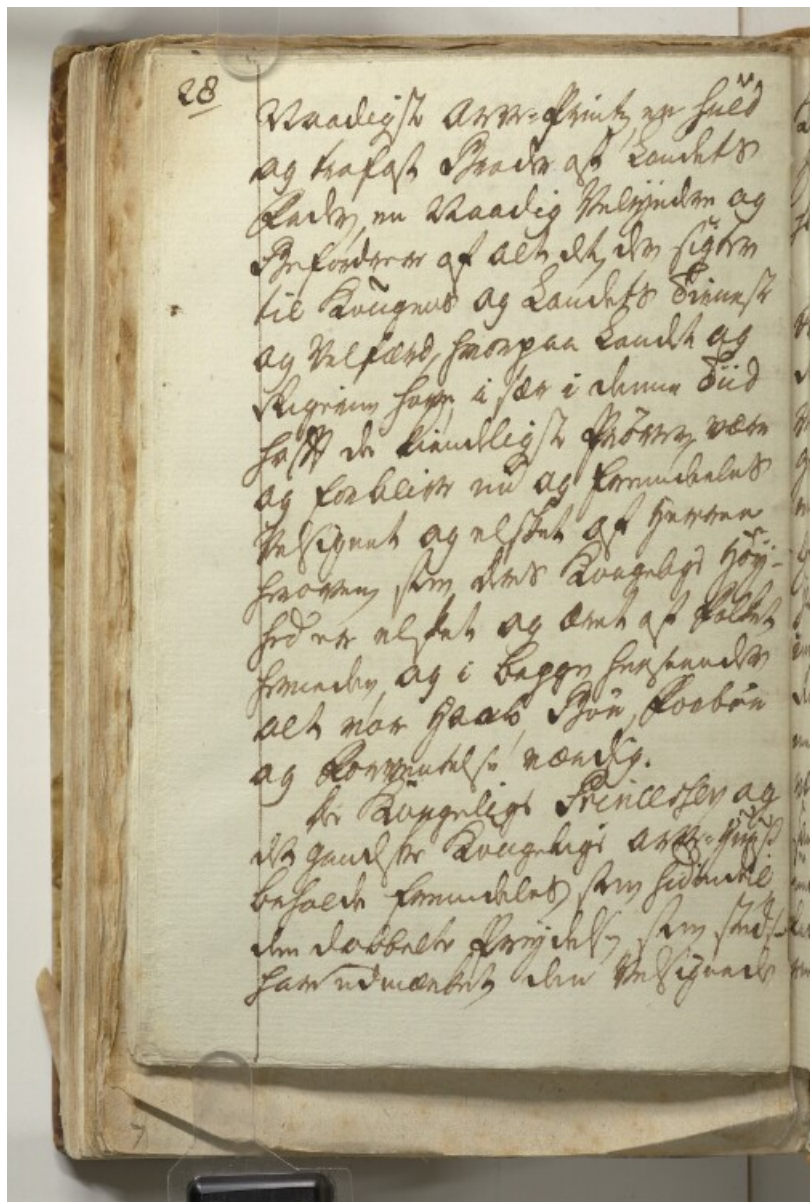 28
Naadigste Arve-Printz, en huld
og trofast Broder af Landets
Fader, en Naadig Velynder og
Befordrer af alt det, der sigter
til Kongens og Landets Tieneste
og Velfærd, hvorpaa Landet og
Regieringen i sær i denne Tiid
hafft de kiendeligste Prøver, være
og forblive nu og fremdeeles
Velsignet og elsket af Herren
heroven, som deres Kongelige Høy-
hed er elsket og æret af Folket
herneden, og i begge henseender
alt vor Haab, Bøn, Forbøn
og Forventelse værdig.
De Kongelige Princesser og
det gandske Kongelige Arve-Huus
beholde fremdeles, som hidindtil
den dobbelte Prydelse, som stedse
har udmærket den Velsignede